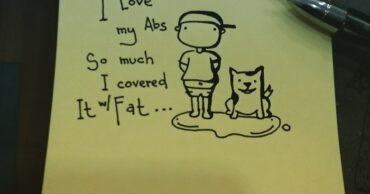 I Love
my Abs
So much
I covered
It w/ Fat ...